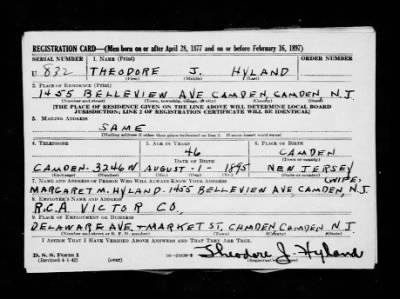 REGISTRATION CARD—(Men born on or after April 28, 1877 and on or before February 16, 1897)
SERIAL NUMBER 1. NAME (Print) ORDER NUMBER
U 832 THEODORE J. HYLAND
(First) (Middle) (Last)
2. PLACE OF RESIDENCE (Print)
1455 BELLEVIEW AVE CAMDEN, CAMDEN, N.J
(Number and street) (Town, township, village, or city) (County) (State)
[THE PLACE OF RESIDENCE GIVEN ON THE LINE ABOVE WILL DETERMINE LOCAL BOARD
JURISDICTION; LINE 2 OF REGISTRATION CERTIFICATE WILL BE IDENTICAL]
3. MAILING ADDRESS
SAME
[Mailing address if other than place indicated on line 2. If same insert word same]
4. TELEPHONE 5. AGE IN YEARS 6. PLACE OF BIRTH
46 CAMDEN
DATE OF BIRTH (Town or county)
CAMDEN-3246W AUGUST-1-1895 NEW JERSEY
7. NAME AND ADDRESS OF PERSON WHO WILL ALWAYS KNOW YOUR ADDRESS (WIFE)
MARGARET M. HYLAND-1455 BELLEVIEW AVE CAMDEN, N.J
8. EMPLOYER'S NAME AND ADDRESS
R.C.A. VICTOR CO.
9. PLACE OF EMPLOYMENT OR BUSINESS
DELAWARE AVE + MARKET ST. CAMDEN CAMDEN N.J
(Number and street or R. F. D. number) (Town) (County) (State)
I AFFIRM THAT I HAVE VERIFIED ABOVE ANSWERS AND THAT THEY ARE TRUE.
D. S. S. Form 1
(Revised 4-1-42) (over) Theodore J. Hyland